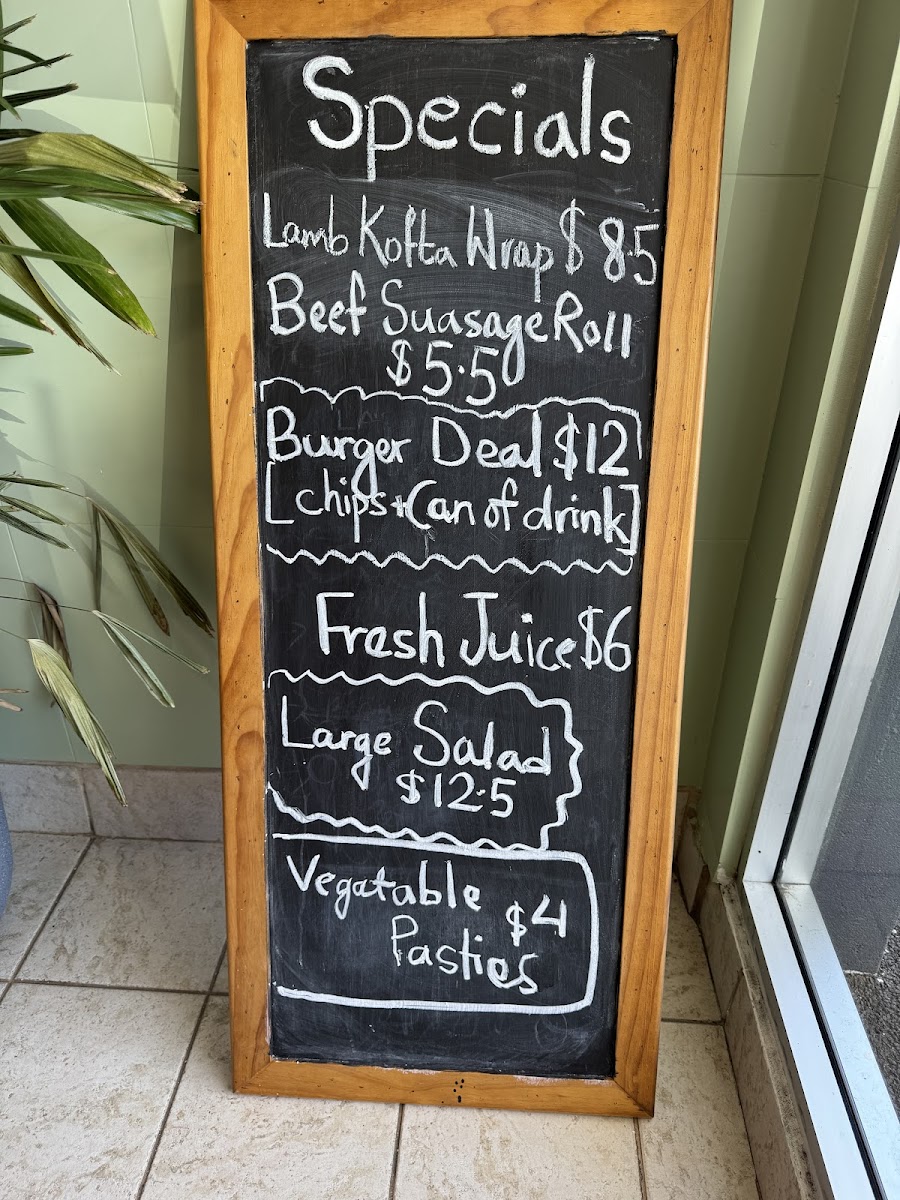 Specials
Lamb Kofta Wrap $ 8.5
Beef Suasage Roll
$5.5
Burger Deal $12
[chips+Can of drink]
Fresh Juice $6
Large Salad
$12.5
Vegatable
$4
Pasties